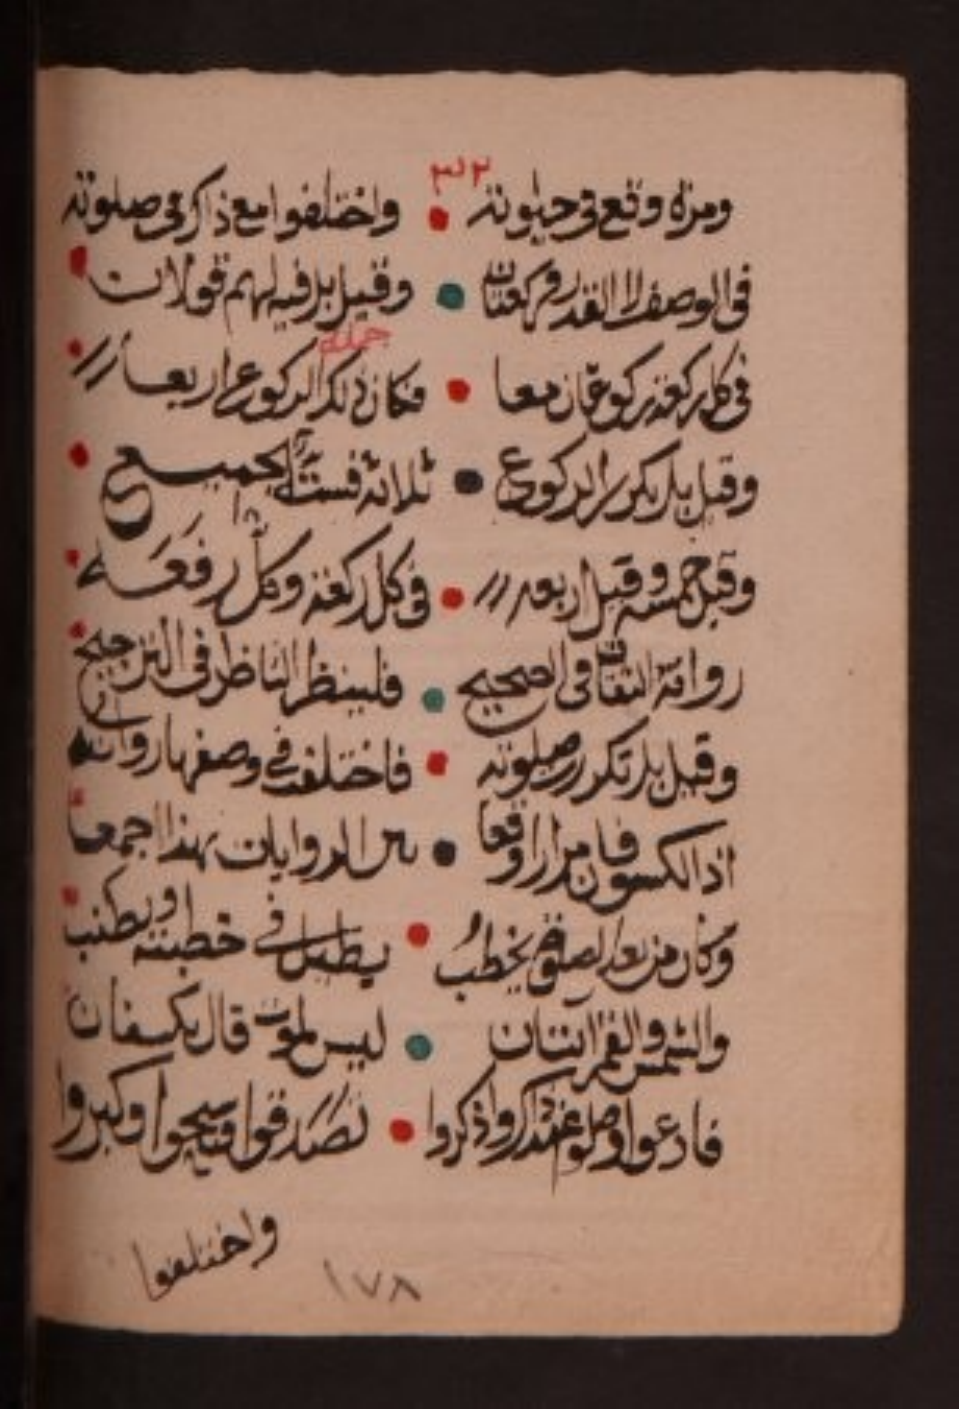 ٣٢
ومرة وقع في حيوته واختلفوا مع ذاكر في صلوته
في الوصف لا القدر فركعتان وقيل بل فيه لهم قولان
جملة
في كل ركعة ركوعان معا فكان ذلك الركوع اربعا
وقيل بل يكرر الركوع ثلاثة فستة الجميع
وقيل خمسة وقيل اربعه في كل ركعة وكل رفعه
رواية الثقات في الصحيح فلينظر الناظر في الترجيح
وقيل بل تكررت صلوته فاختلفت في وصفها رواته
اذ الكسوف مرارا وقعا بين الروايات بهذا اجمعا
وكان من بعد الصلوة يخطب يطيل في خطبته ويطنب
والشمس والقمر آيتان ليس لموت قال يكسفان
فادعوا وصلوا عند ذاك واذكروا تصدقوا وسبحوا وكبروا
واختلفوا
١٧٨